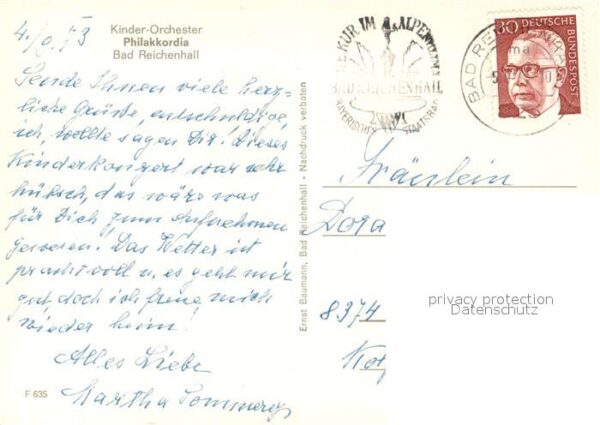 Kinder-Orchester
Philakkordia
Bad Reichenhall
4./6. 73
Sende Ihnen viele herz-
liche Grüße, entschuldige,
ich, wollte sagen Dir! Dieses
Kinderkonzert war sehr
hübsch, das wäre was
für Dich zum Aufnehmen
gewesen. Das Wetter ist
prachtvoll u. es geht mir
gut doch ich freue mich
wieder heim!
Alles Liebe
Martha
F 635
Ernst Baumann, Bad Reichenhall - Nachdruck verboten
KUR IM ALPENKLIMA
BAD REICHENHALL
BAYERISCHES STAATSBAD
BAD REICHENHALL
30 DEUTSCHE BUNDESPOST
Fräulein
Dora
8374
privacy protection
Datenschutz